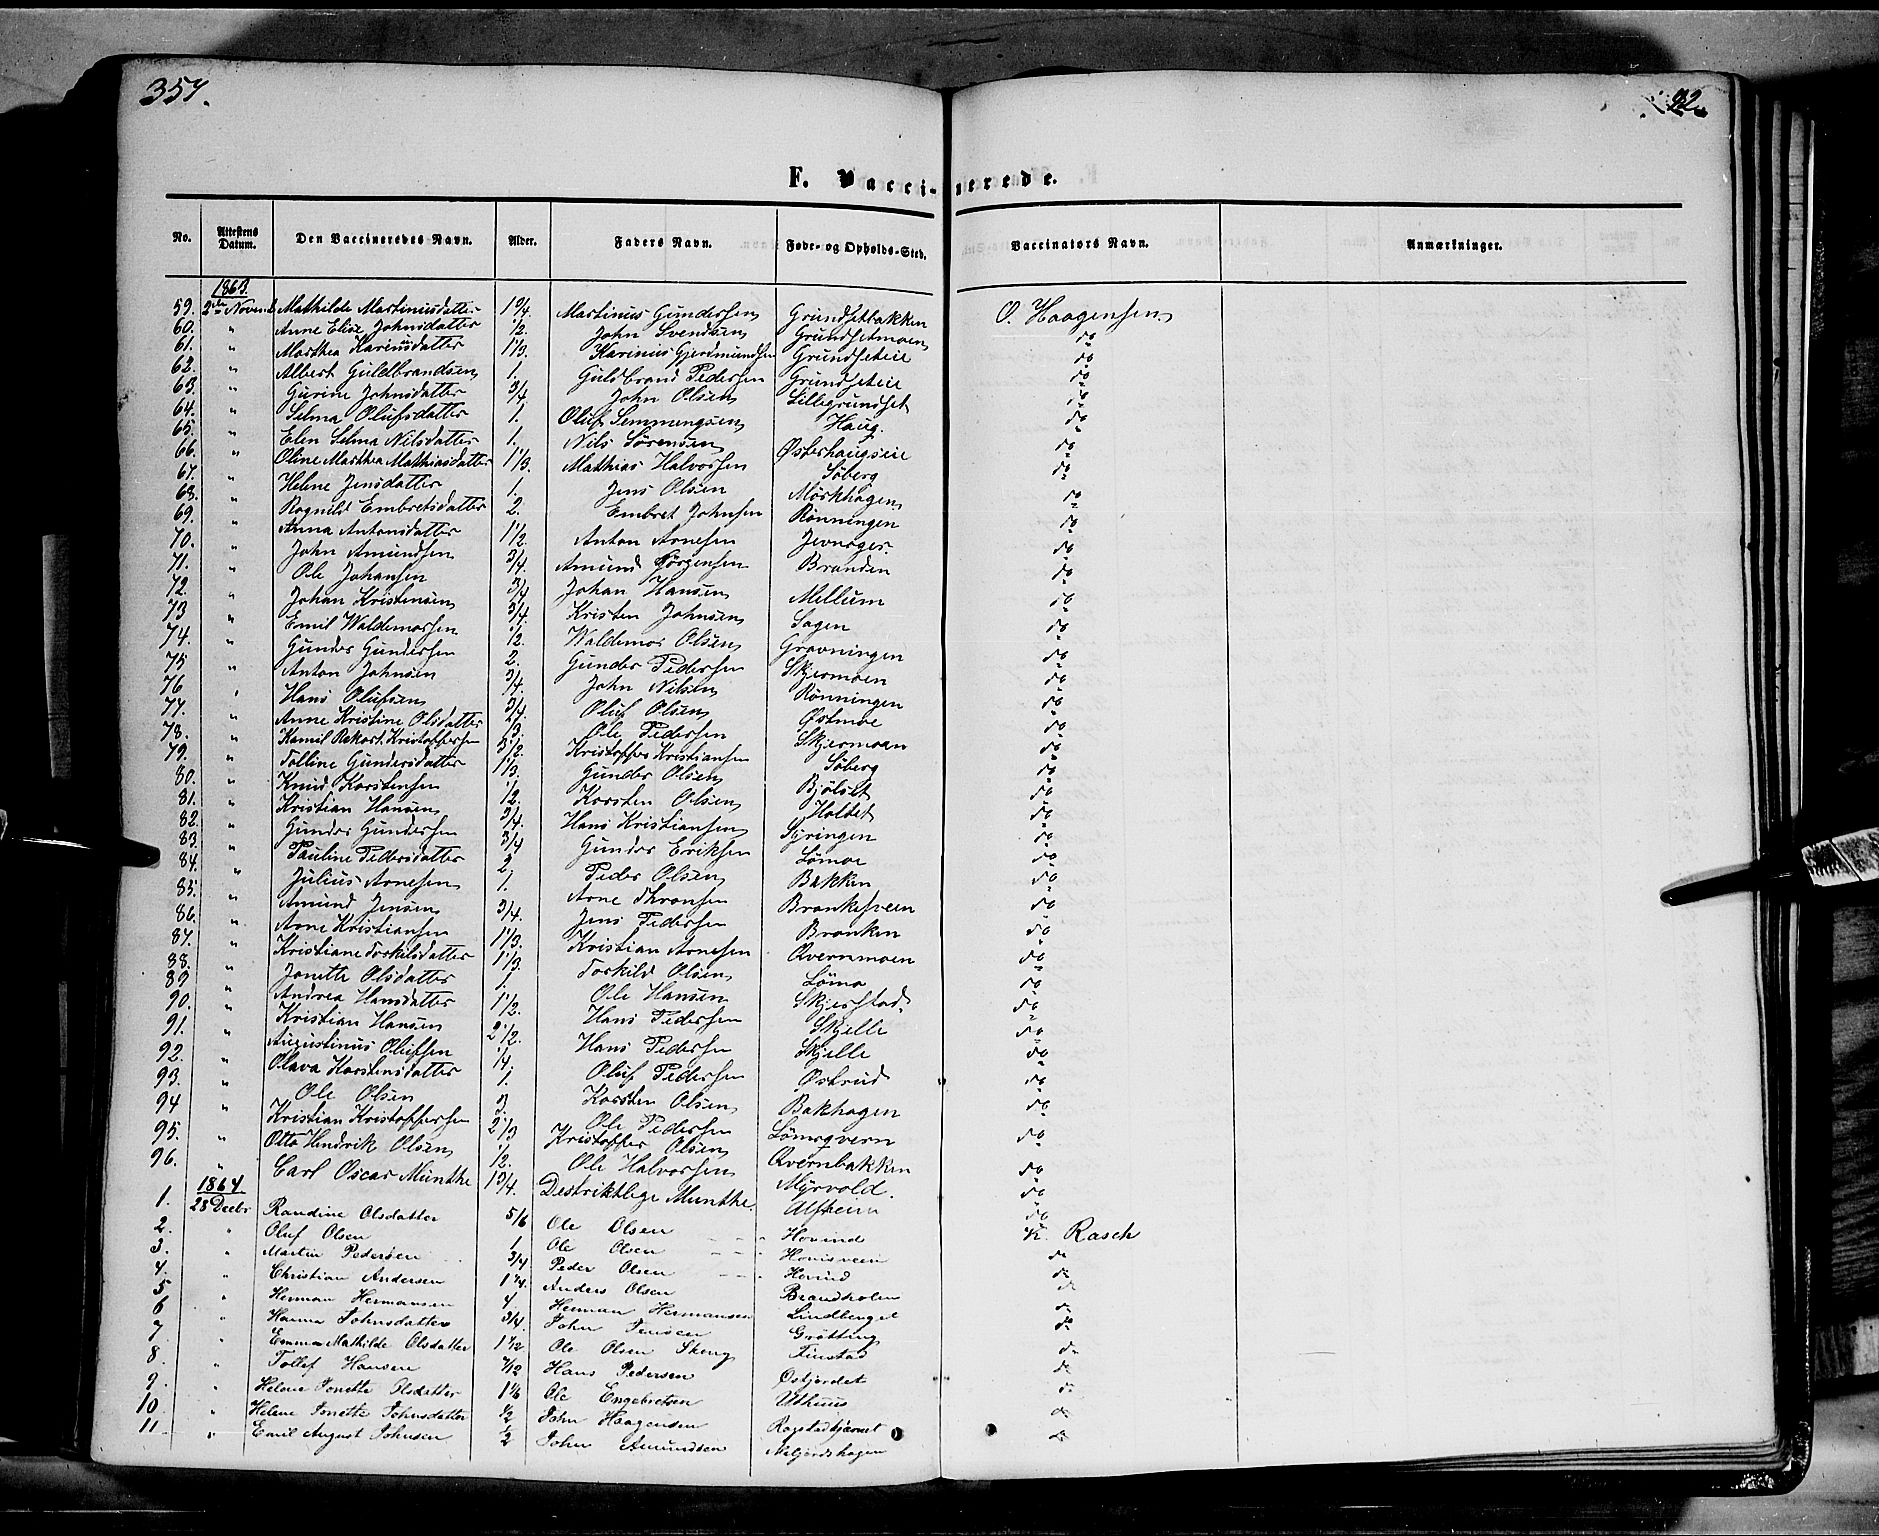 357.
22.
F. Vaccinerede.
No. Attestens Datum. Den Vaccineredes Navn. Alder. Faders Navn. Føde- og Opholds-Sted. Vaccinators Navn. Anmærkninger.
1863.
59. 2den Novemb Mathilde Martinusdatter Martinus Gundersen Grundsetbakken O. Haagensen
60. " Anne Elise Johnsdatter 1/2. John Svendsen Grundsetmoen do
61. " Marthea Karinusdatter 1 1/3. Karinus Gjerdmundsen Grundseteie do
62. " Albert Guldbrandsen 1. Guldbrand Pedersen Grundseteie do
63. " Gurine Johnsdatter 3/4. John Olsen Lillegrundset do
64. " Selma Olufsdatter 1. Oluf Semmengsen Haug. do
65. " Elen Selma Nilsdatter 1. Nils Sørensen Østerhaugseie do
66. " Oline Marthea Mathiasdatter 1 1/3. Mathias Halvorsen Søberg do
67. " Helene Jensdatter 1. Jens Olsen Mörkhagen do
68. " Ragnild Embretsdatter 2. Embret Johnsen Rönningen do
69. " Anna Antonsdatter 1 1/2. Anton Arnesen Jevnager. do
70. " John Amundsen 3/4. Amund Jörgensen Branden do
71. " Ole Johansen 3/4 Johan Hansen Mellum do
72. " Johan Kristensen 3/4. Kristen Johnsen Sagen do
73 " Emil Waldemarsen 1/2. Waldemar Olsen Gravningen do
74. " Gunder Gundersen 2. Gunder Pedersen Skjermoen do
75 " Anton Johnsen 3/4. John Nilsen Rönningen do
76 " Hans Olufsen 3/4. Oluf Olsen Østmoe do
77. " Anne Kristine Olsdatter Ole Pedersen Skjermoen do
78. " Kamil Rekart Kristoffersen 3 1/2. Kristoffer Kristiansen Söberg do
79. " Tolline Gundersdatter 1 1/3. Gunder Olsen Bjölset do
80. " Knud Karstensen 1/2. Karsten Olsen Holtet do
81. " Kristian Hansen 3/4. Hans Kristiansen Syringen do
82. " Gunder Gundersen 3/4 Gunder Eriksen Lömoe do
83. " Pauline Pedersdatter 2. Peder Olsen Bakken do
84. " Julius Arnesen 1. Arne Thronsen Brankesveen do
85. " Amund Jensen 3/4. Jens Pedersen Branken do
86. " Arne Kristiansen 1 1/3. Kristian Arnesen Qvernmoen do
87. " Kristiane Torkilsdatter 1 1/3. Torkild Olsen Lömo do
88. " Jonette Olsdatter 1. Ole Hansen Skjerstad do
89 " Andrea Hansdatter 1 1/2. Hans Pedersen Skjelle do
90. " Kristian Hansen 2 1/2. Hans Pedersen Skjelle do
91. " Augustinus Olufsen 1/4. Oluf Pedersen Østrud do
92. " Olava Karstensdatter 1. Karsten Olsen Bakhagen do
93. " Ole Olsen 3. Ole Pedersen Lömoqvern do
94 " Kristian Kristoffersen 2 1/3 Kristoffer Olsen Qvernbakken do
95. " Otto Hendrik Olsen 1/2. Ole Halvorsen Myrvold. do
96. " Carl Oscar Münthe 1 3/4. Destriktlege Münthe. Alfheim do
1864
1. 28 Decbr Randine Olsdatter 5/6 Ole Olsen Hovind K. Rasch
2. " Oluf Olsen 1 Ole Olsen Hovisveen do
3. " Martin Pedersen 3/4 Peder Olsen Hovind do
4. " Christian Andersen 1 1/4. Anders Olsen Brandholen do
5 " Herman Hermansen 4. Herman Hermansen Lindberget do
6 " Hanna Johnsdatter 3/4. John Jensen Grötting do
7 " Emma Mathilde Olsdatter 1 1/2 Ole Olsen Skeng Finstad do
8. " Tollef Hansen 7/12 Hans Pedersen Östjordet do
9. " Helene Jonette Olsdatter 1 1/6 Ole Engebretsen Uthuus do
10 " Helene Jonette Johnsdatter 1/2 John Haagensen Rogstadkjernet do
11 " Emil August Johnsen 1/2 John Amundsen Meljordshagen do